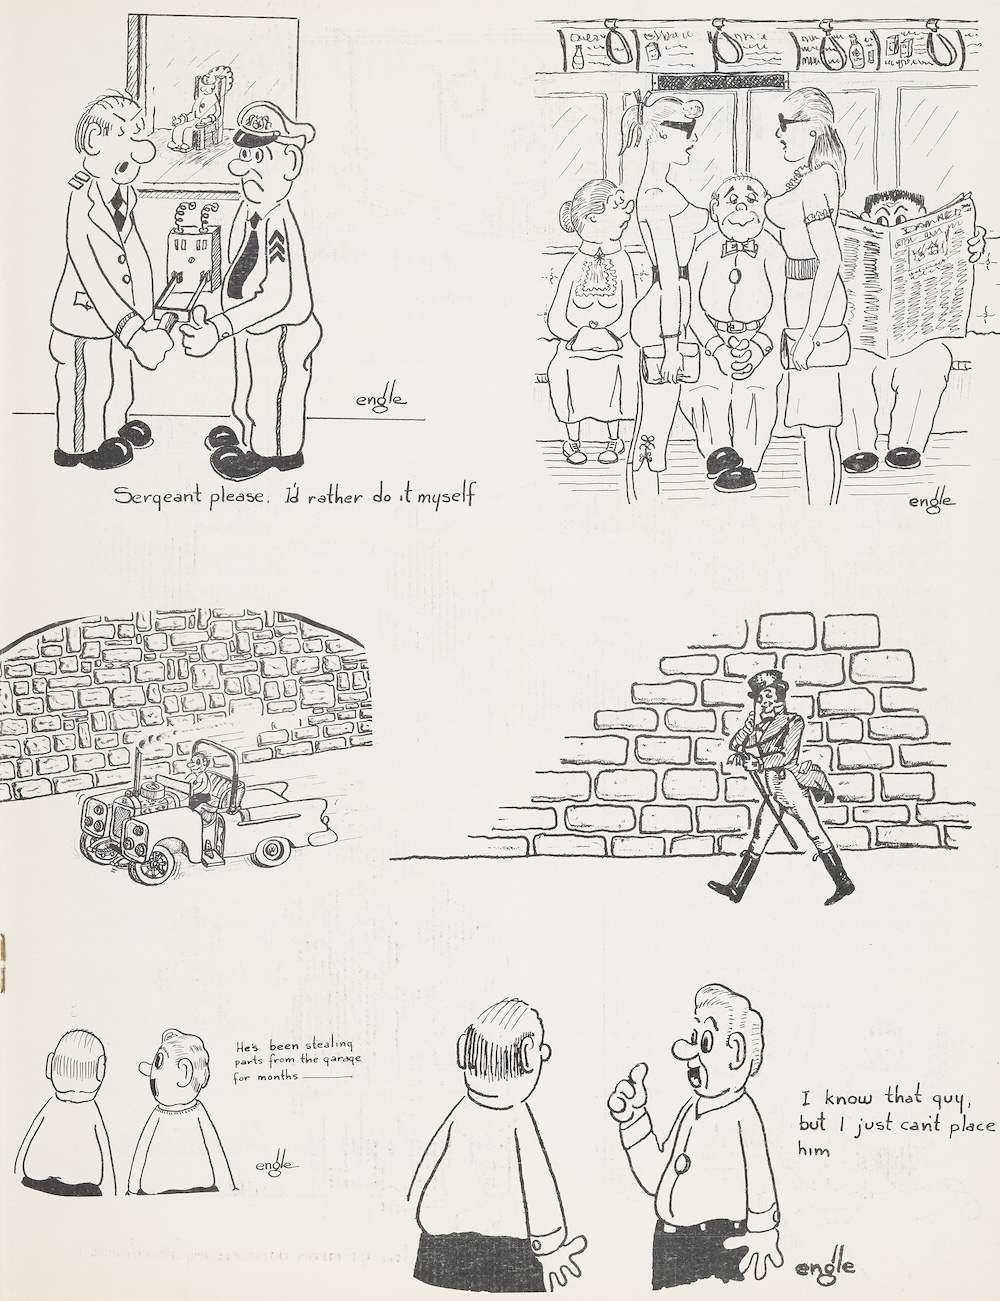 engle
Sergeant please. I'd rather do it myself
engle
He's been stealing
parts from the garage
for months
engle
I know that guy,
but I just can't place
him
engle